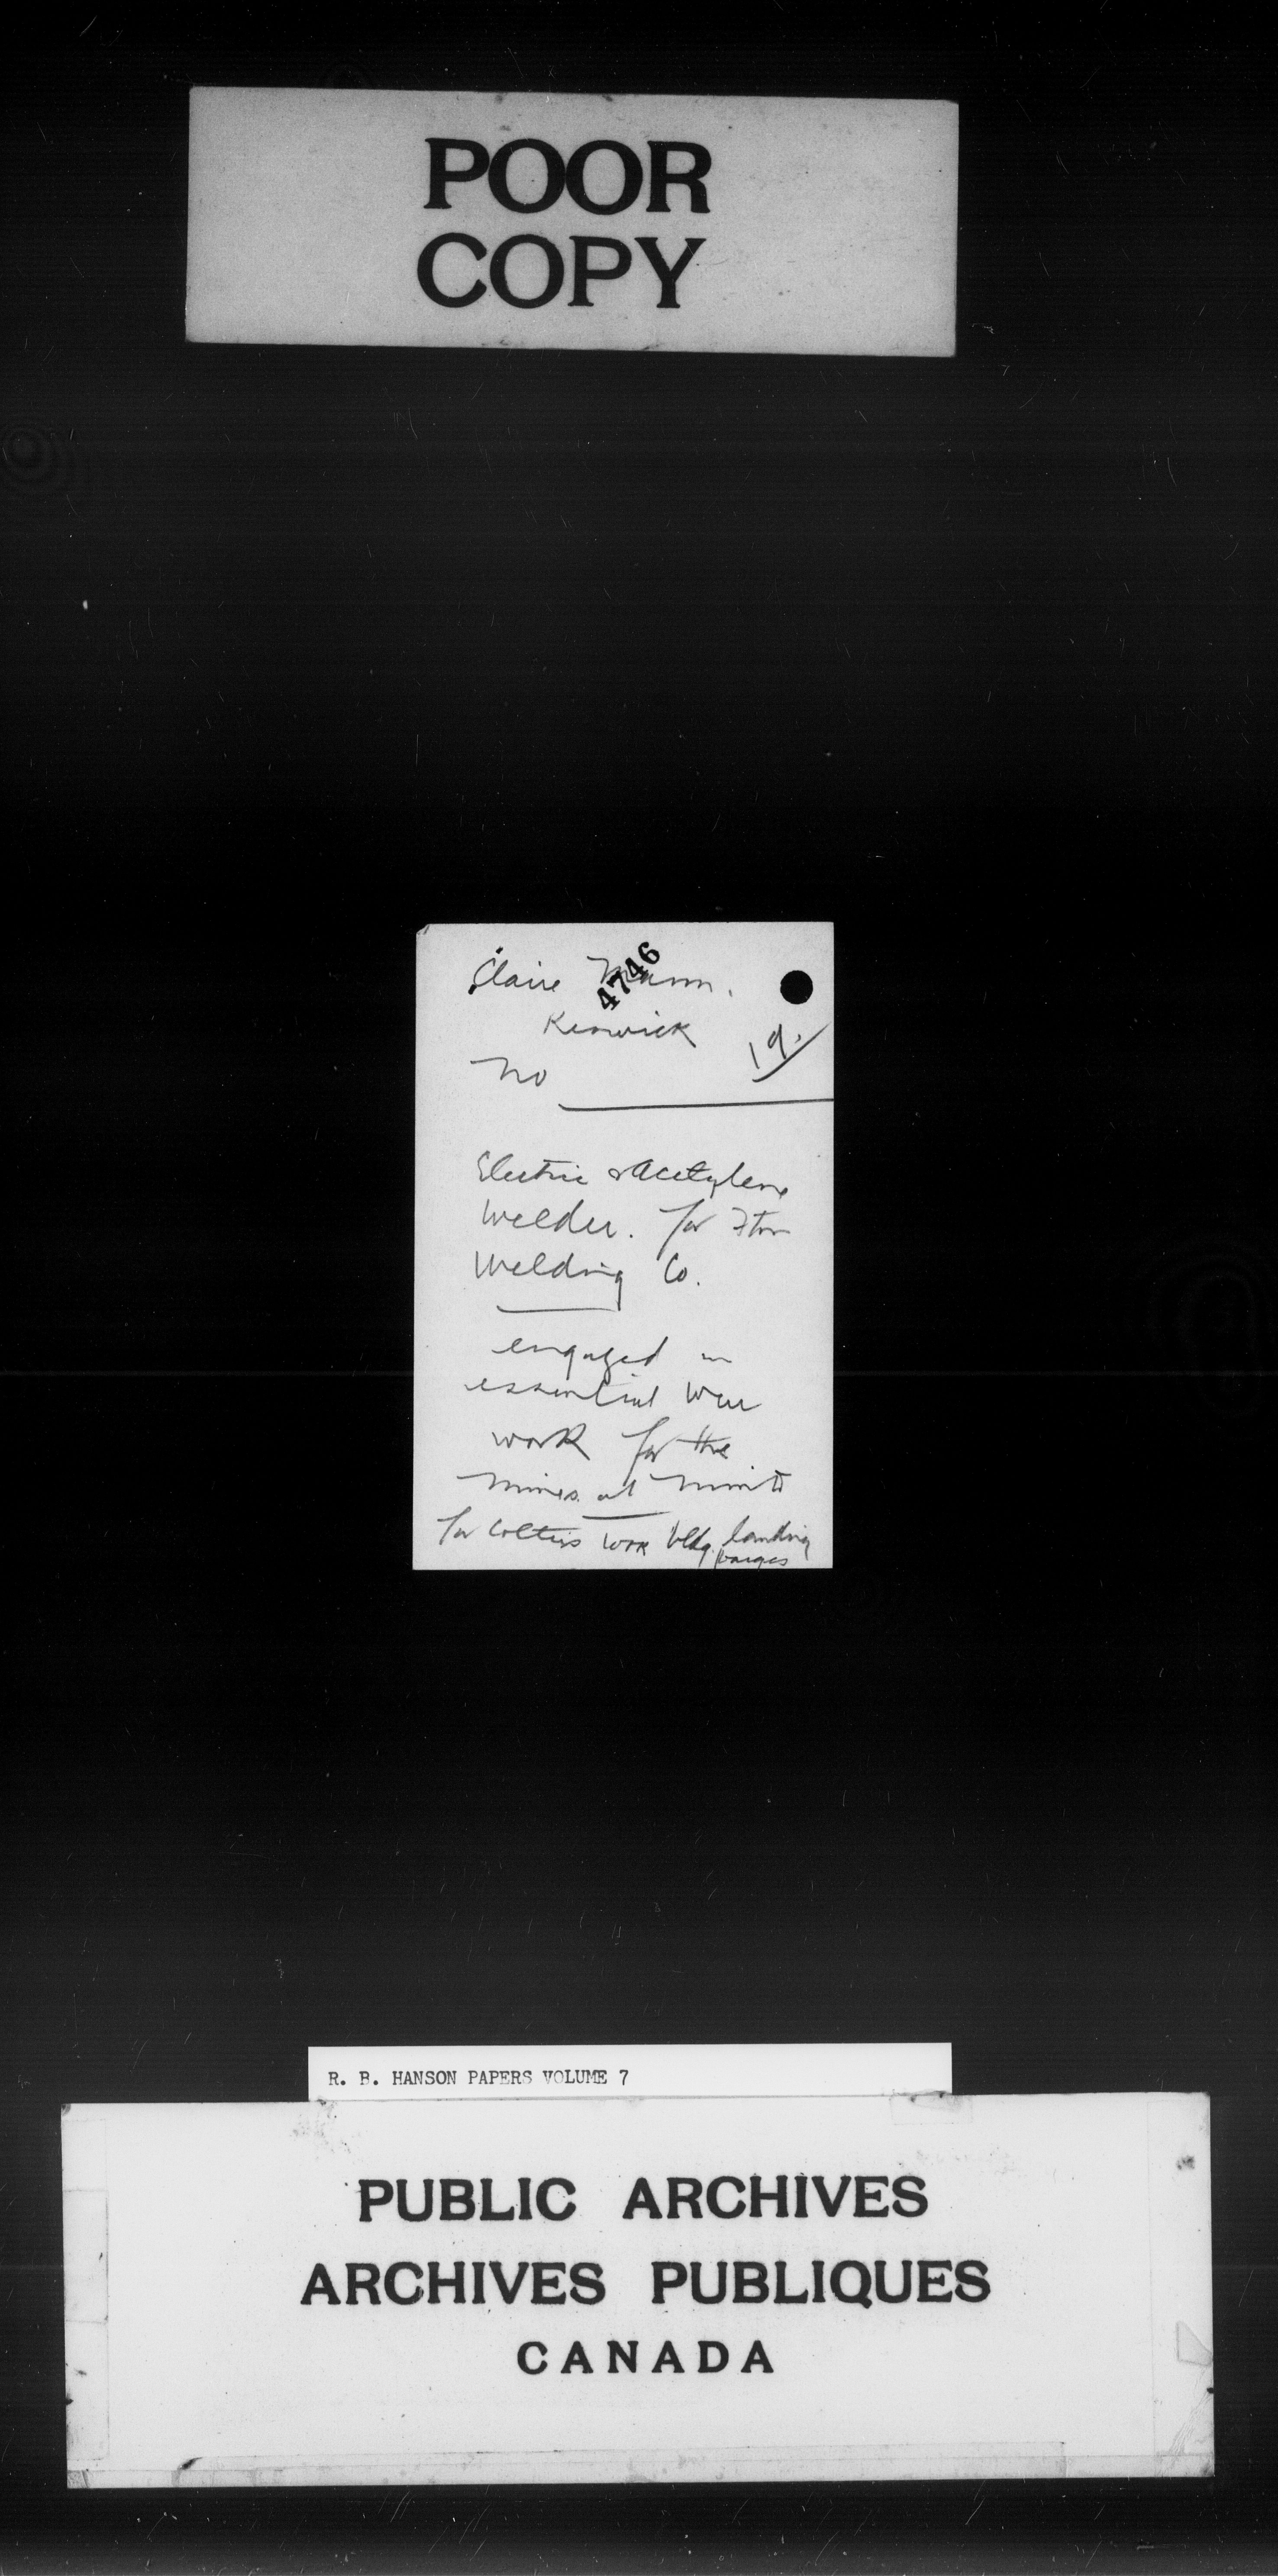 POOR
COPY
4746
Claire Mann.
Keswick
19.
No
Electric & Acetylene
Welder. for Fton
Welding Co.
engaged in
essential War
work for the
mines at Minto
for Colters work bldg. landing
barges
R. B. HANSON PAPERS VOLUME 7
PUBLIC ARCHIVES
ARCHIVES PUBLIQUES
CANADA